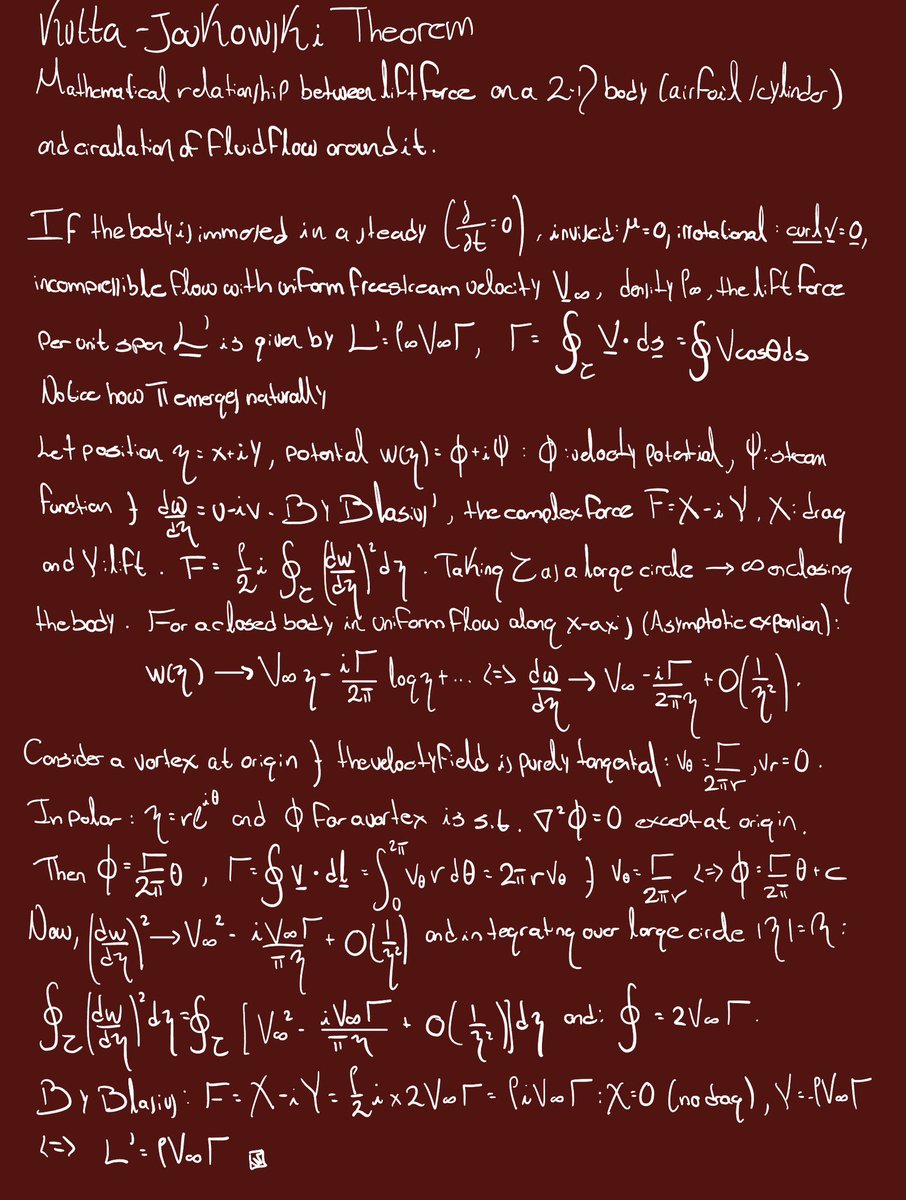 Kutta-Joukowski Theorem
Mathematical relationship between lift force on a 2-D body (airfoil/cylinder)
and circulation of fluid flow around it.
If the body is immersed in a steady (∂/∂t = 0), inviscid: μ=0, irrotational: curl v = 0,
incompressible flow with uniform freestream velocity V∞, density ρ∞, the lift force
per unit span L' is given by L' = ρ∞V∞Γ, Γ = ∮_C V·ds = ∮ V cosθ ds
Notice how π emerges naturally
Let position η = x+iy, potential w(η) = φ+iψ : φ: velocity potential, ψ: stream
function } dw/dη = u-iv. By Blasius', the complex force F = X-iY, X: drag
and Y: lift. F = ρ/2 i ∮_C (dw/dη)² dη. Taking C as a large circle → ∞ enclosing
the body. For a closed body in uniform flow along x-axis (Asymptotic expansion):
w(η) → V∞η - iΓ/2π log η + ... <=> dw/dη → V∞ - iΓ/2πη + O(1/η²).
Consider a vortex at origin } the velocity field is purely tangential: vθ = Γ/2πr, vr = 0.
In polar: η = re^{iθ} and φ for a vortex is s.t. ∇²φ = 0 except at origin.
Then φ = Γ/2π θ, Γ = ∮ v·dl = ∫₀^{2π} vθ r dθ = 2πr vθ } vθ = Γ/2πr <=> φ = Γ/2π θ + c
Now, (dw/dη)² → V∞² - iV∞Γ/πη + O(1/η²) and integrating over large circle |η| = R:
∮_C (dw/dη)² dη = ∮_C [V∞² - iV∞Γ/πη + O(1/η²)] dη and: ∮ = 2V∞Γ.
By Blasius: F = X-iY = ρ/2 i × 2V∞Γ = ρiV∞Γ : X=0 (no drag), Y = -ρV∞Γ
<=> L' = ρV∞Γ